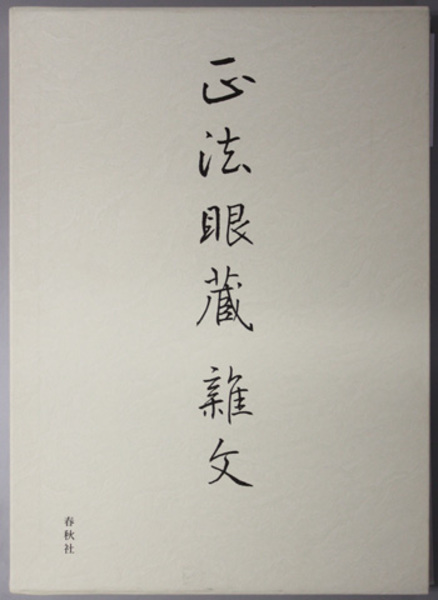 正法眼蔵 雜文
春秋社